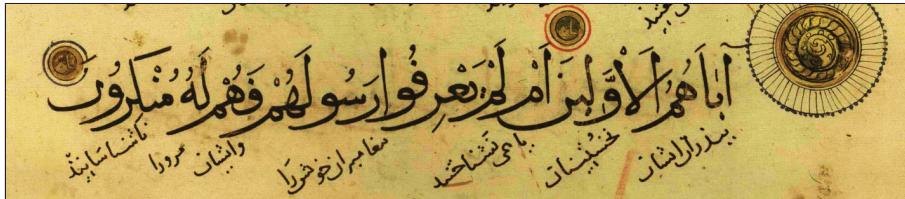 آبَاهُمُ الْأَوَّلِينَ أَمْ لَمْ يَعْرِفُوا رَسُولَهُمْ فَهُمْ لَهُ مُنْكِرُونَ
پدران ایشان نخستینان یا می نشناختند پیغامبران خویش را وایشان مرورا